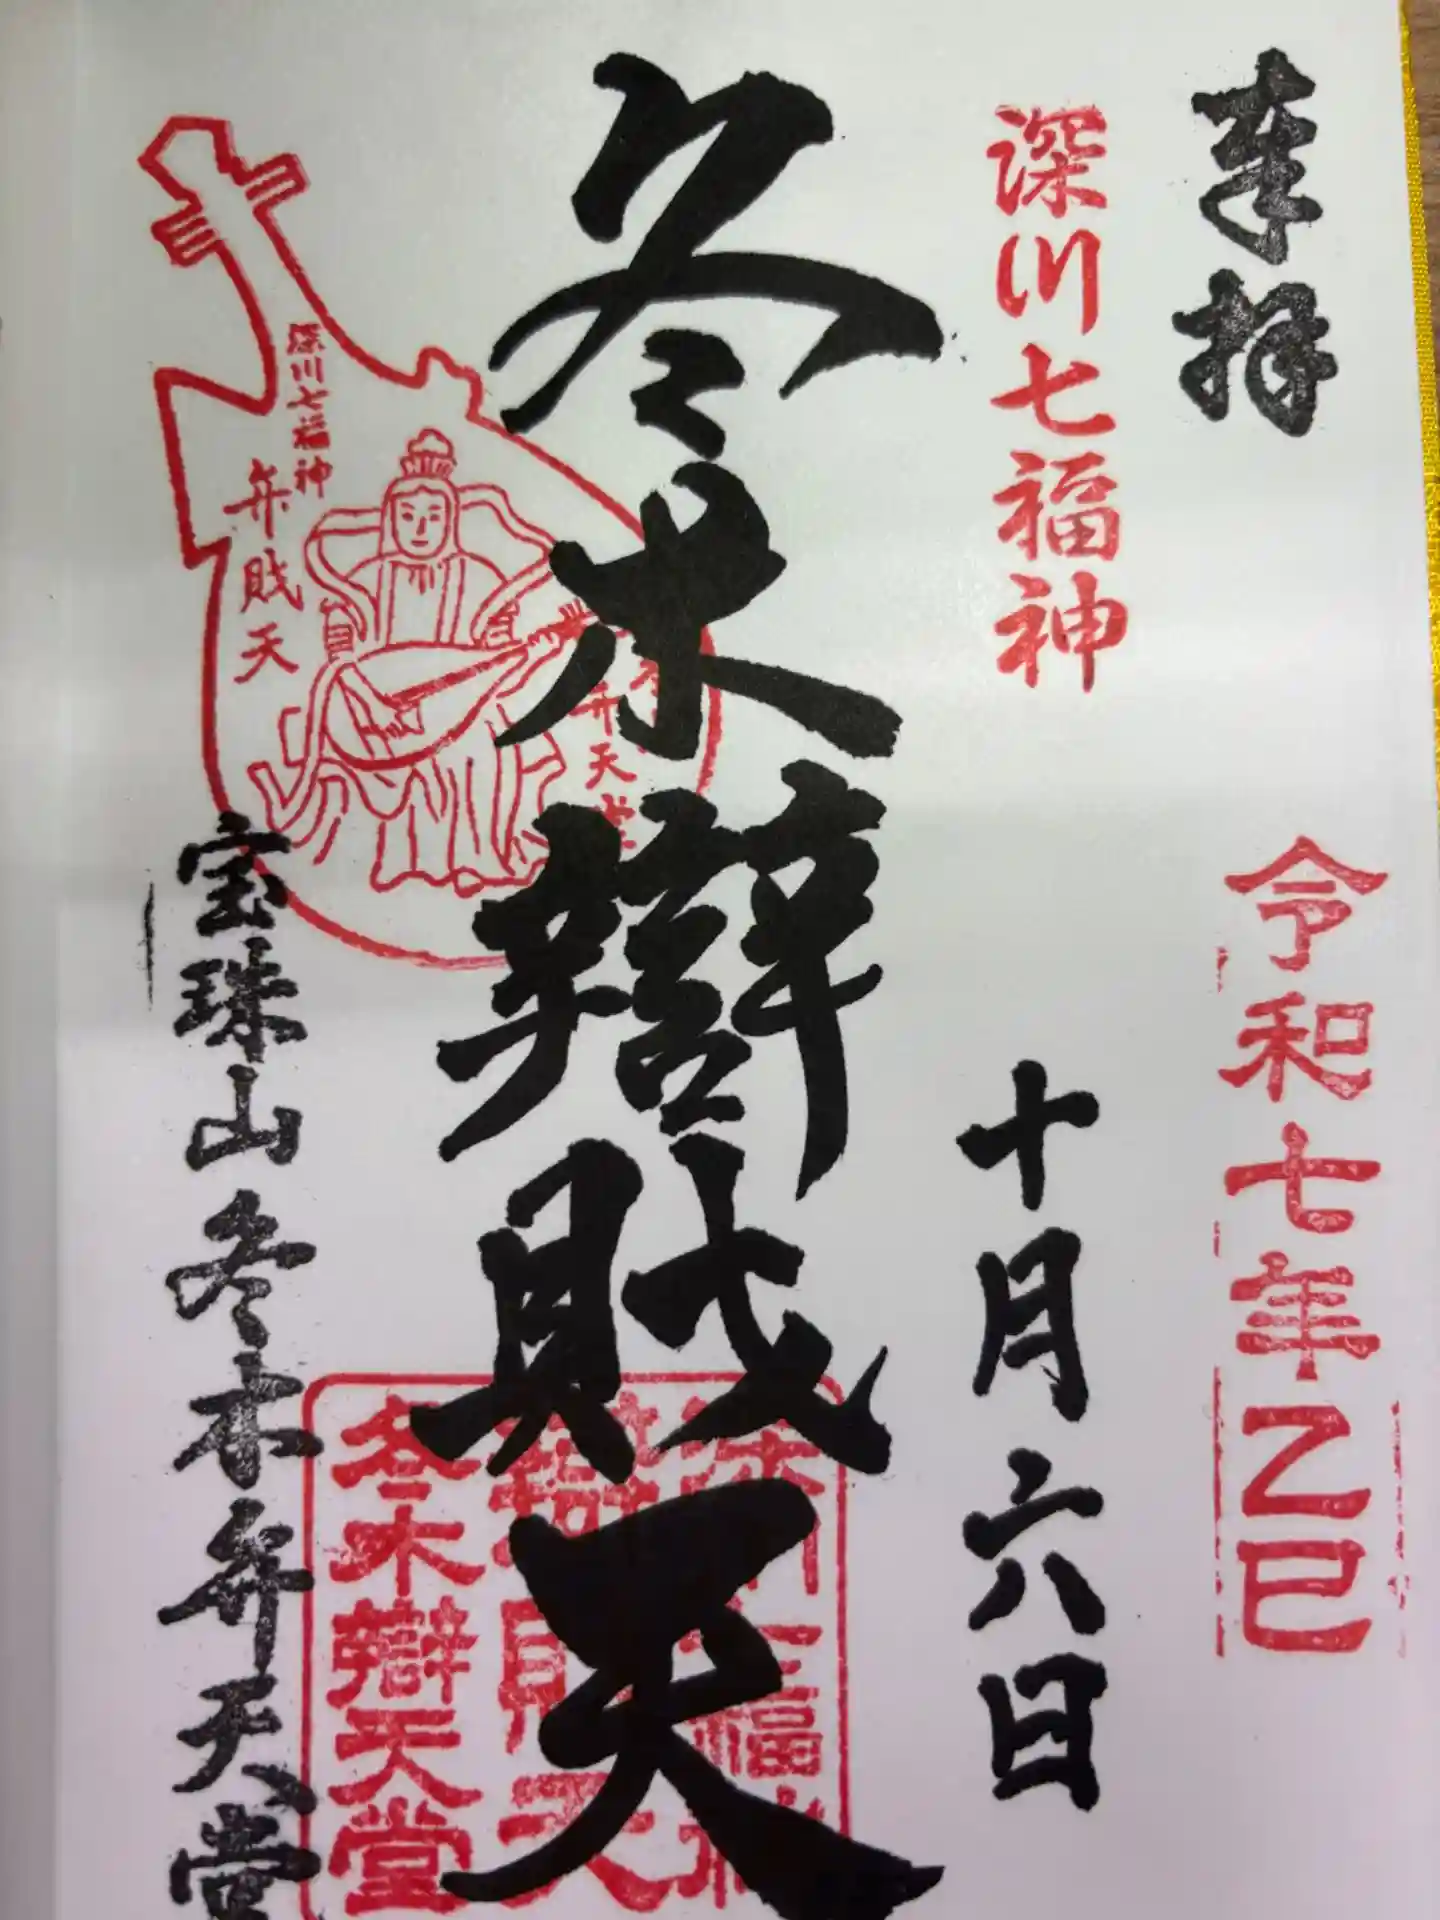 奉拝
令和七年乙巳
深川七福神
十月六日
冬木辯財天
深川七福神
弁財天
弁天堂
宝珠山冬木弁天堂
冬木辯天堂